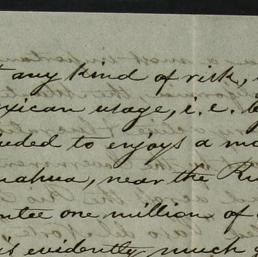 any kind of risk,
exican usage, i.e. b
eded to enjoys a m
uahua, near the Ri
ntee one million of
is evidently much g